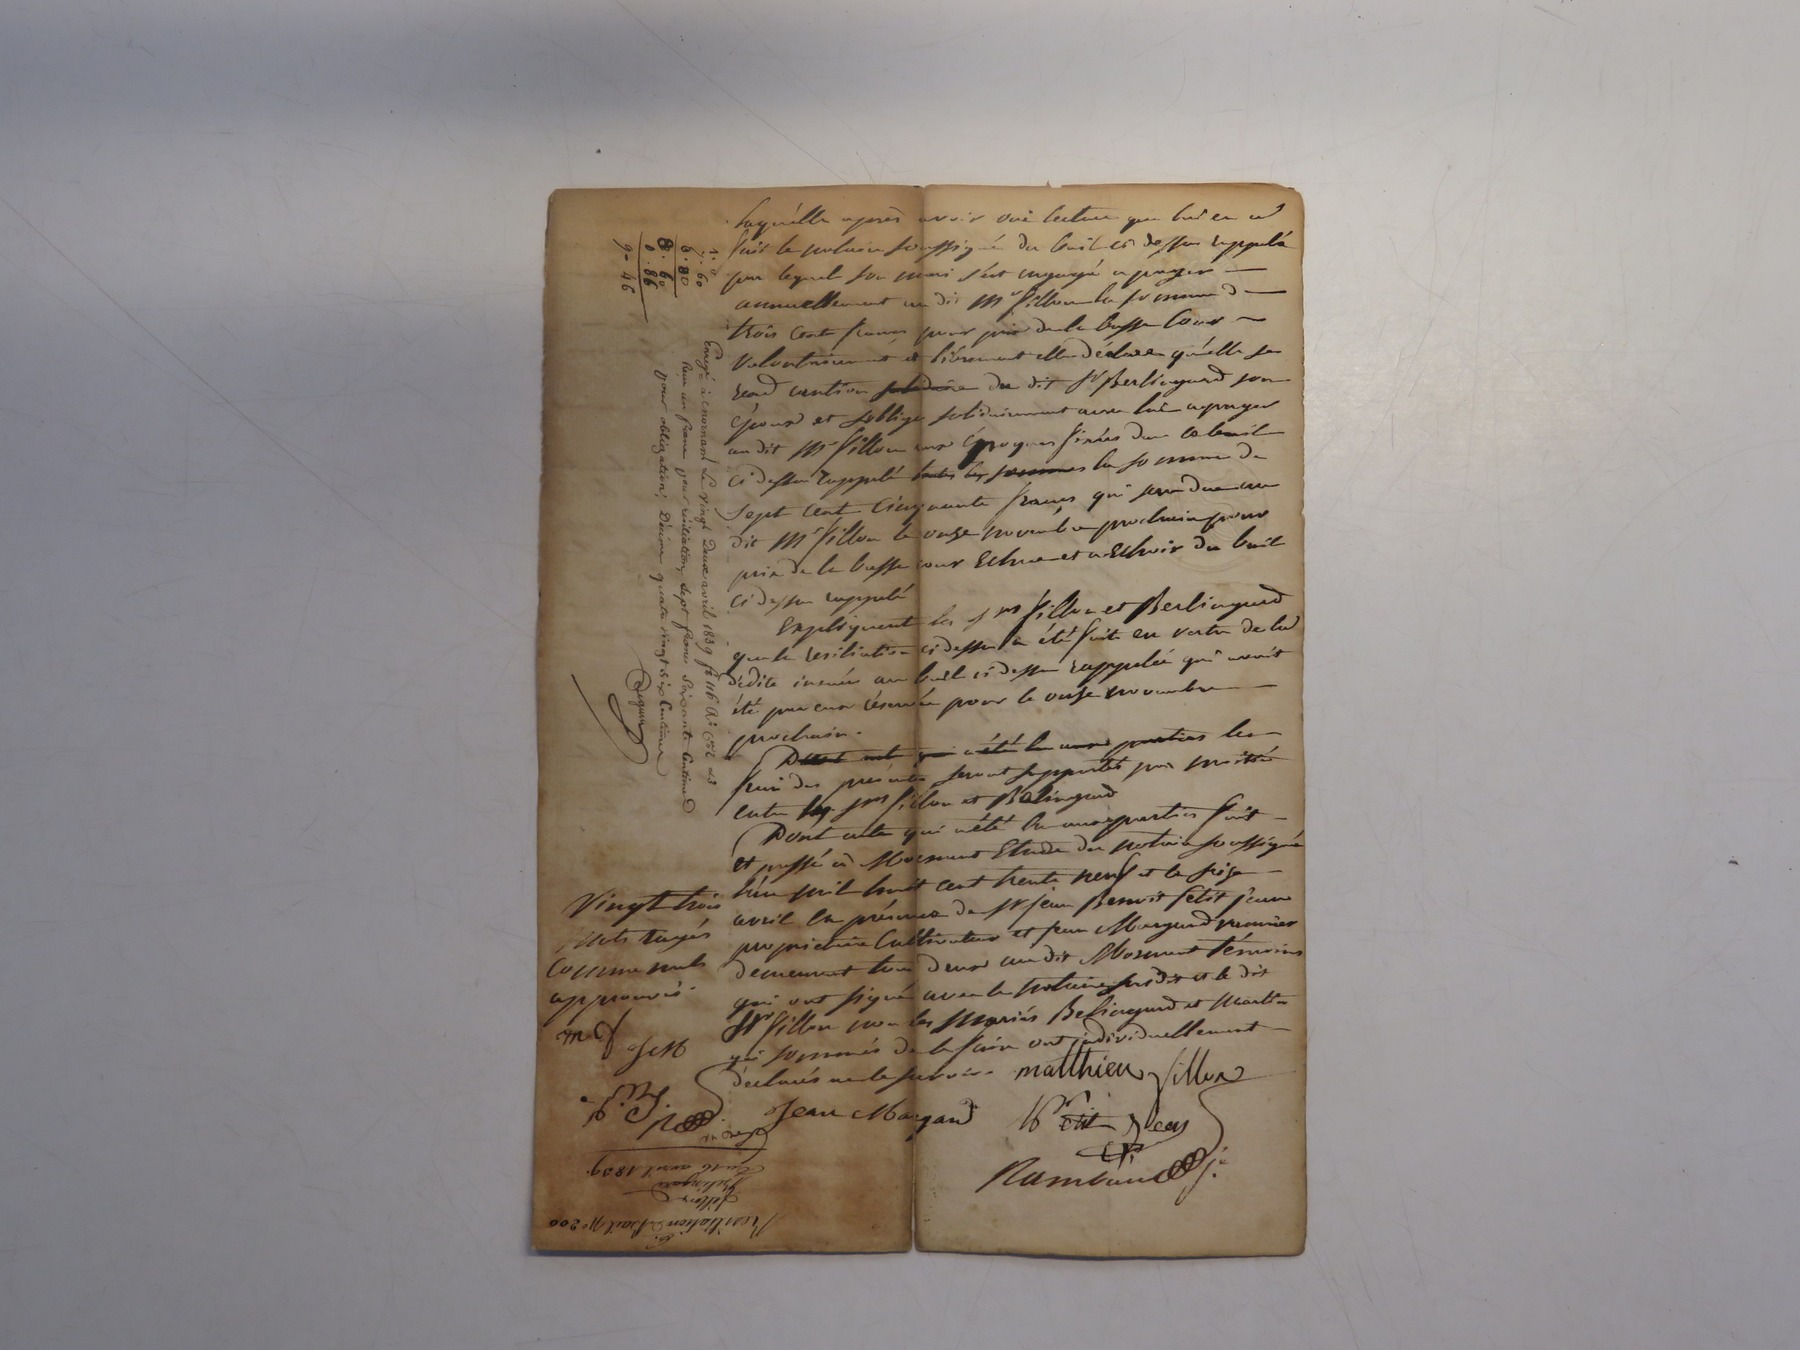 laquelle après avoir ouï lecture que lui en a
fait le notaire soussigné du bail ci dessus rappelé
par lequel son mari s'est engagé a payer
annuellement au dit Mr fillon la somme de
trois cent francs pour prix de la basse Cour
Volontairement et librement elle déclare qu'elle se
rend caution solidaire du dit Sr Berlingard son
époux et s'oblige solidairement avec lui a payer
au dit Mr fillon aux époques fixées dans le bail
ci dessus rappelé toutes les sommes la somme de
Sept Cent Cinquante francs qui sera due au
dit Mr fillon le onze novembre prochain pour
prix de la basse cour Echue et a Echoir du bail
ci dessus rappelé
Expliquent les Srs fillon et Berlingard
que la résiliation ci dessus a été fait en vertu de la
dédite insérée au bail ci dessus rappelée qui avait
été par eux réservée pour le onze novembre
prochain.
Dont acte qui a été lu aux parties les
frais des présentes seront supportés par moitié
entre les Srs fillon et Belingard
Dont acte qui a été lu aux parties fait
et passé a Mornant Etude du notaire soussigné
l'an mil huit cent trente neuf et le seize
avril en présence de Sr jean Benoit Petit jeune
propriétaire Cultivateur et jean Margand
demeurant tous deux au dit Mornant témoins
qui ont signé avec le notaire susdit et le dit
Sr fillon non les Mariés Belingard et Martin
qui sommés de le faire ont individuellement
déclarés ne le savoir.
matthieu fillon
Jean Margand
Rambaud
Vingt trois
mots rayés
Comme nuls
approuvés.
m f
J M
1. 0
7. 60
0. 80
8. 60
0. 86
9. 46
Enregé à mornant Le vingt Deux avril 1839 fo 116
Reçu un franc pour résiliation, sept francs soixante centimes
pour obligation, Décime quatre vingt six Centimes
Résiliation de bail No 200
fillon
Belingard
Du 16 avril 1839